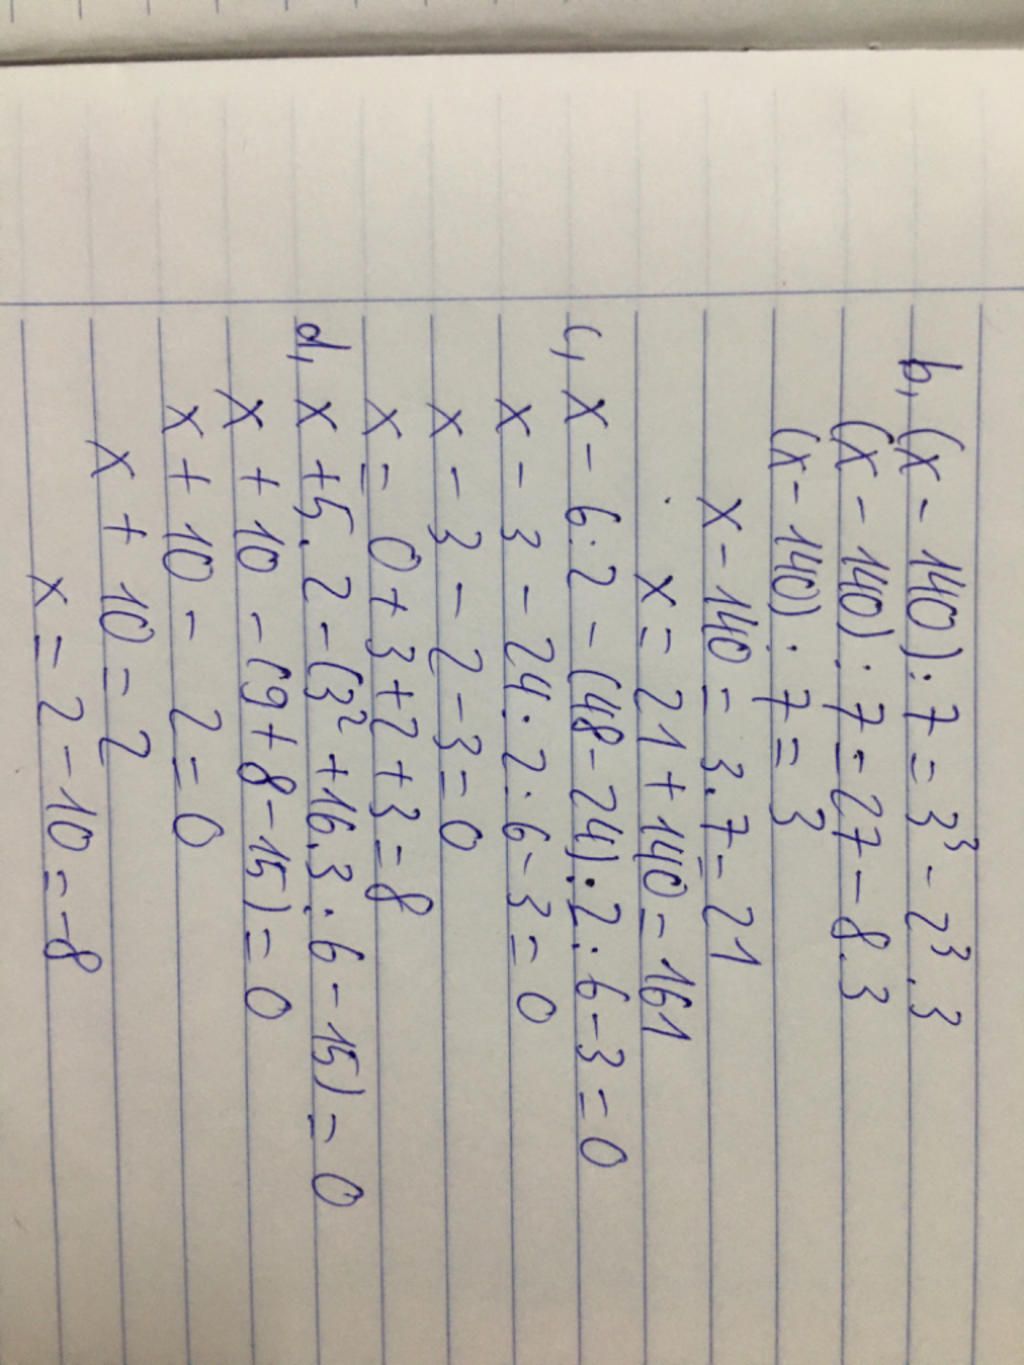 b, (x - 140) : 7 = 3³ - 2³ . 3
(x - 140) : 7 = 27 - 8 . 3
(x - 140) : 7 = 3
x - 140 = 3 . 7 = 21
x = 21 + 140 = 161
c, x - 6 : 2 - (48 - 24) : 2 : 6 - 3 = 0
x - 3 - 24 : 2 : 6 - 3 = 0
x - 3 - 2 - 3 = 0
x = 0 + 3 + 2 + 3 = 8
d, x + 5 . 2 - (3² + 16 . 3 : 6 - 15) = 0
x + 10 - (9 + 8 - 15) = 0
x + 10 - 2 = 0
x + 10 = 2
x = 2 - 10 = -8